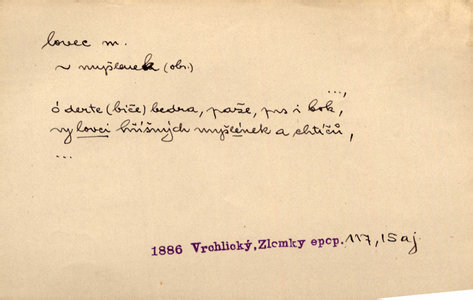 lovec m.
~ myšlenek (obr.)
...,
ó derte (biče) bedra, paže, prs i bok,
vy lovci hříšných myšlének a chtíčů,
...
1886 Vrchlický, Zlomky epop. 117, 15 aj.